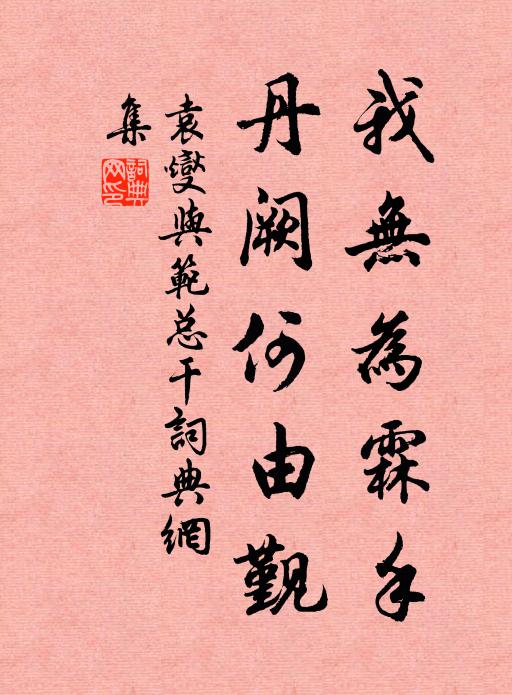 我無為霖手
丹阙何由觐
袁燮與範总干詞典網
集
詞典網印